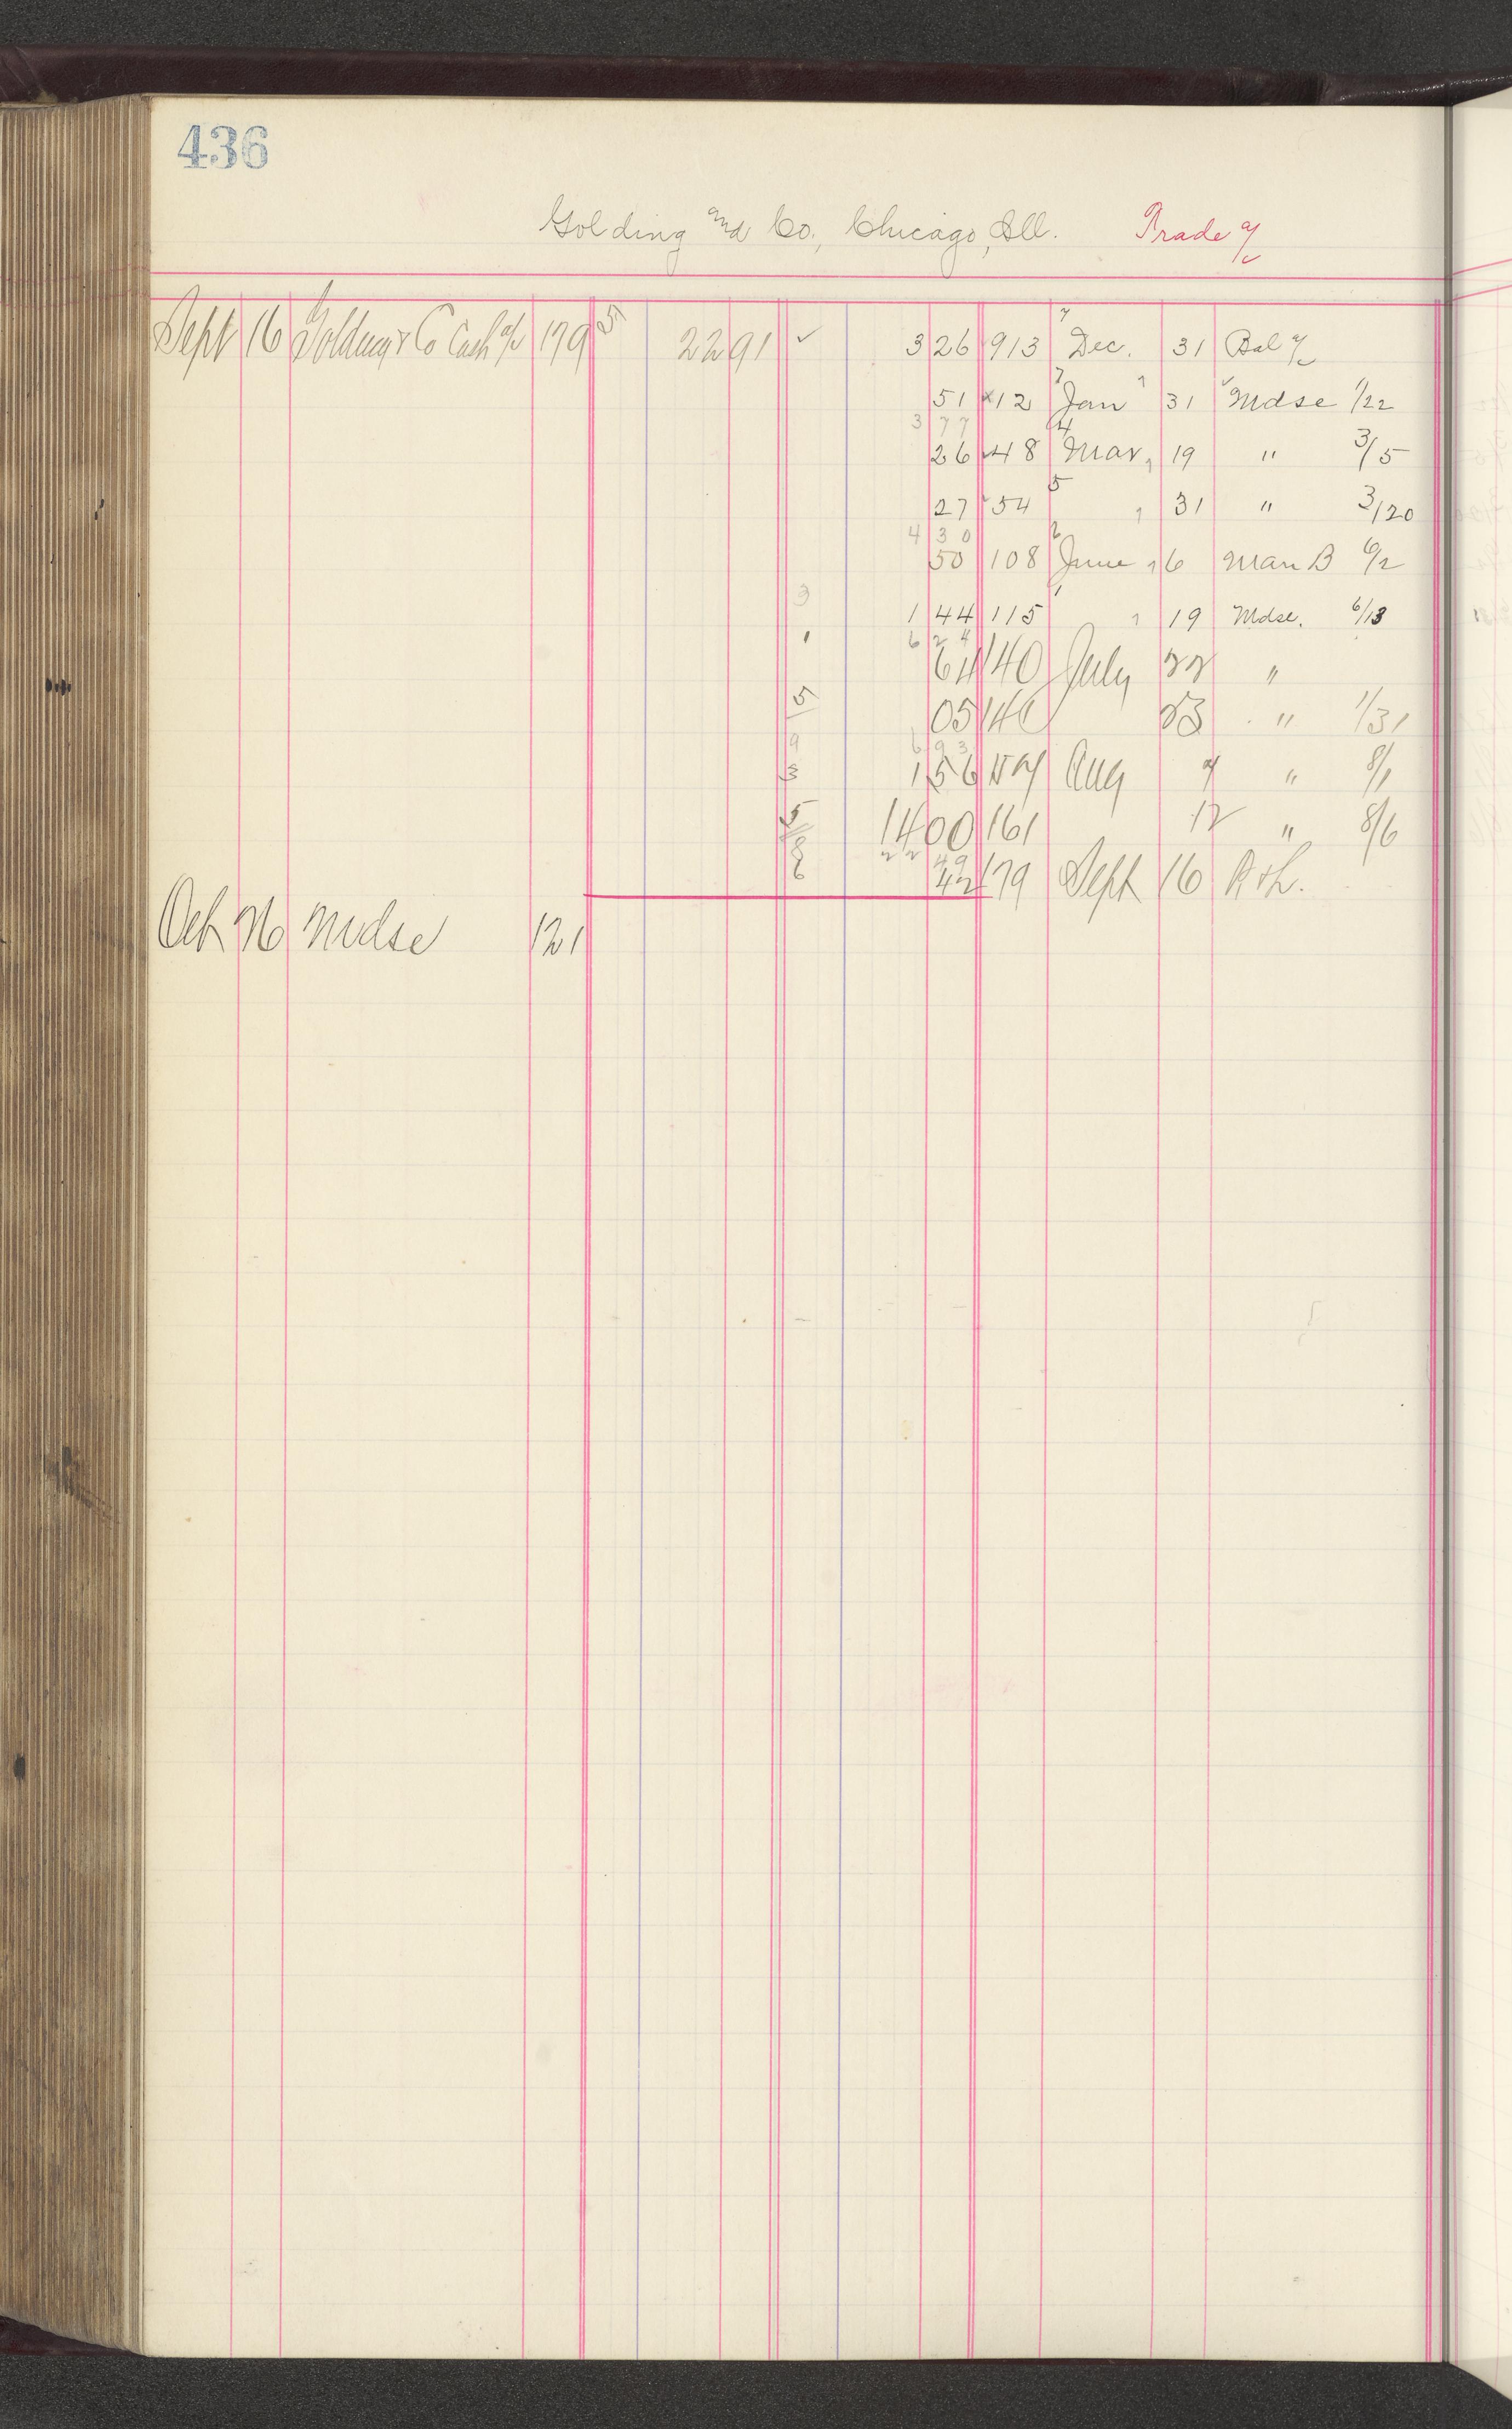 436
Golding and Co., Chicago, Ill. Trade a/c
Sept 16 Golding & Co Cash a/c 179 22 91 ✓ 3 26 913 Dec. 31 Bal a/c
51 12 Jan 31 Mdse 1/22
3 77
26 48 Mar, 19 " 3/5
27 54 31 " 3/20
4 30
50 108 June 6 Man B 6/2
1 44 115 19 Mdse. 6/13
6 24
64 140 July 22 "
05 141 23 " 1/31
6 93
1 56 157 Aug 7 " 8/1
14 00 161 12 " 8/6
22 49
42 179 Sept 16 R & L.
Oct 26 Mdse 121